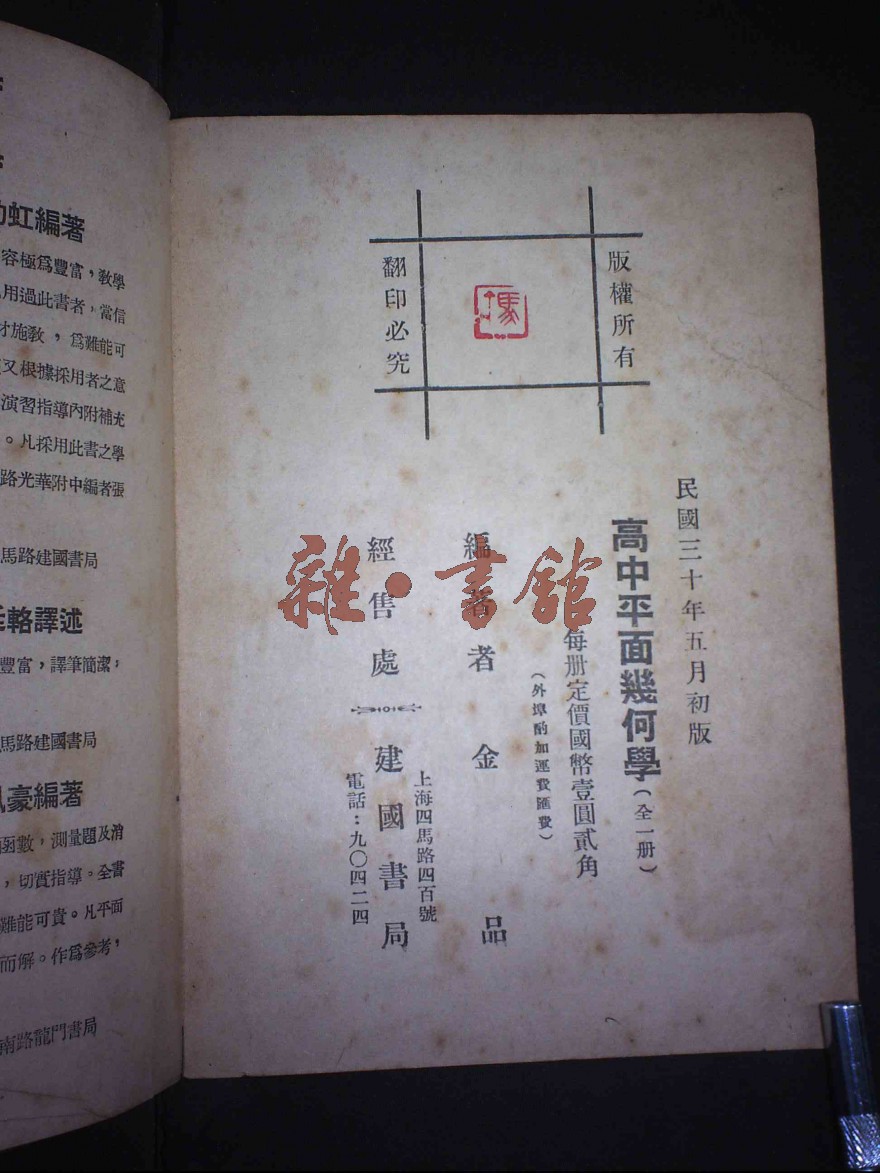 版權所有
翻印必究
民國三十年五月初版
高中平面幾何學(全一册)
每册定價國幣壹圓貳角
(外埠酌加運費匯費)
編著者金品
經售處建國書局
上海四馬路四百號
電話:九〇四二四
雜·書舘
虹編著
容極爲豐富,敎學
用過此書者,當信
才施敎,爲難能可
又根據採用者之意
演習指導內附補充
。凡採用此書之學
路光華附中編者張
馬路建國書局
輅譯述
豐富,譯筆簡潔,
馬路建國書局
豪編著
函數,測量題及消
,切實指導。全書
難能可貴。凡平面
而解。作爲參考,
南路龍門書局